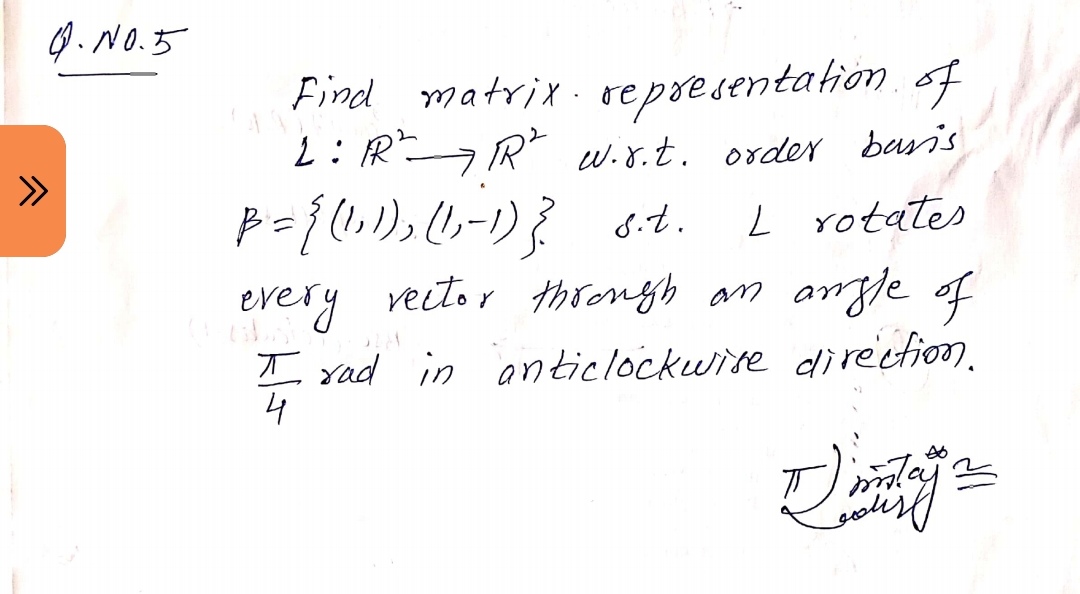 Q. NO. 5
Find matrix representation of
L : ℝ² → ℝ² w.r.t. order basis
β = {(1,1), (1,-1)} s.t. L rotates
every vector through an angle of
π/4 rad in anticlockwise direction.